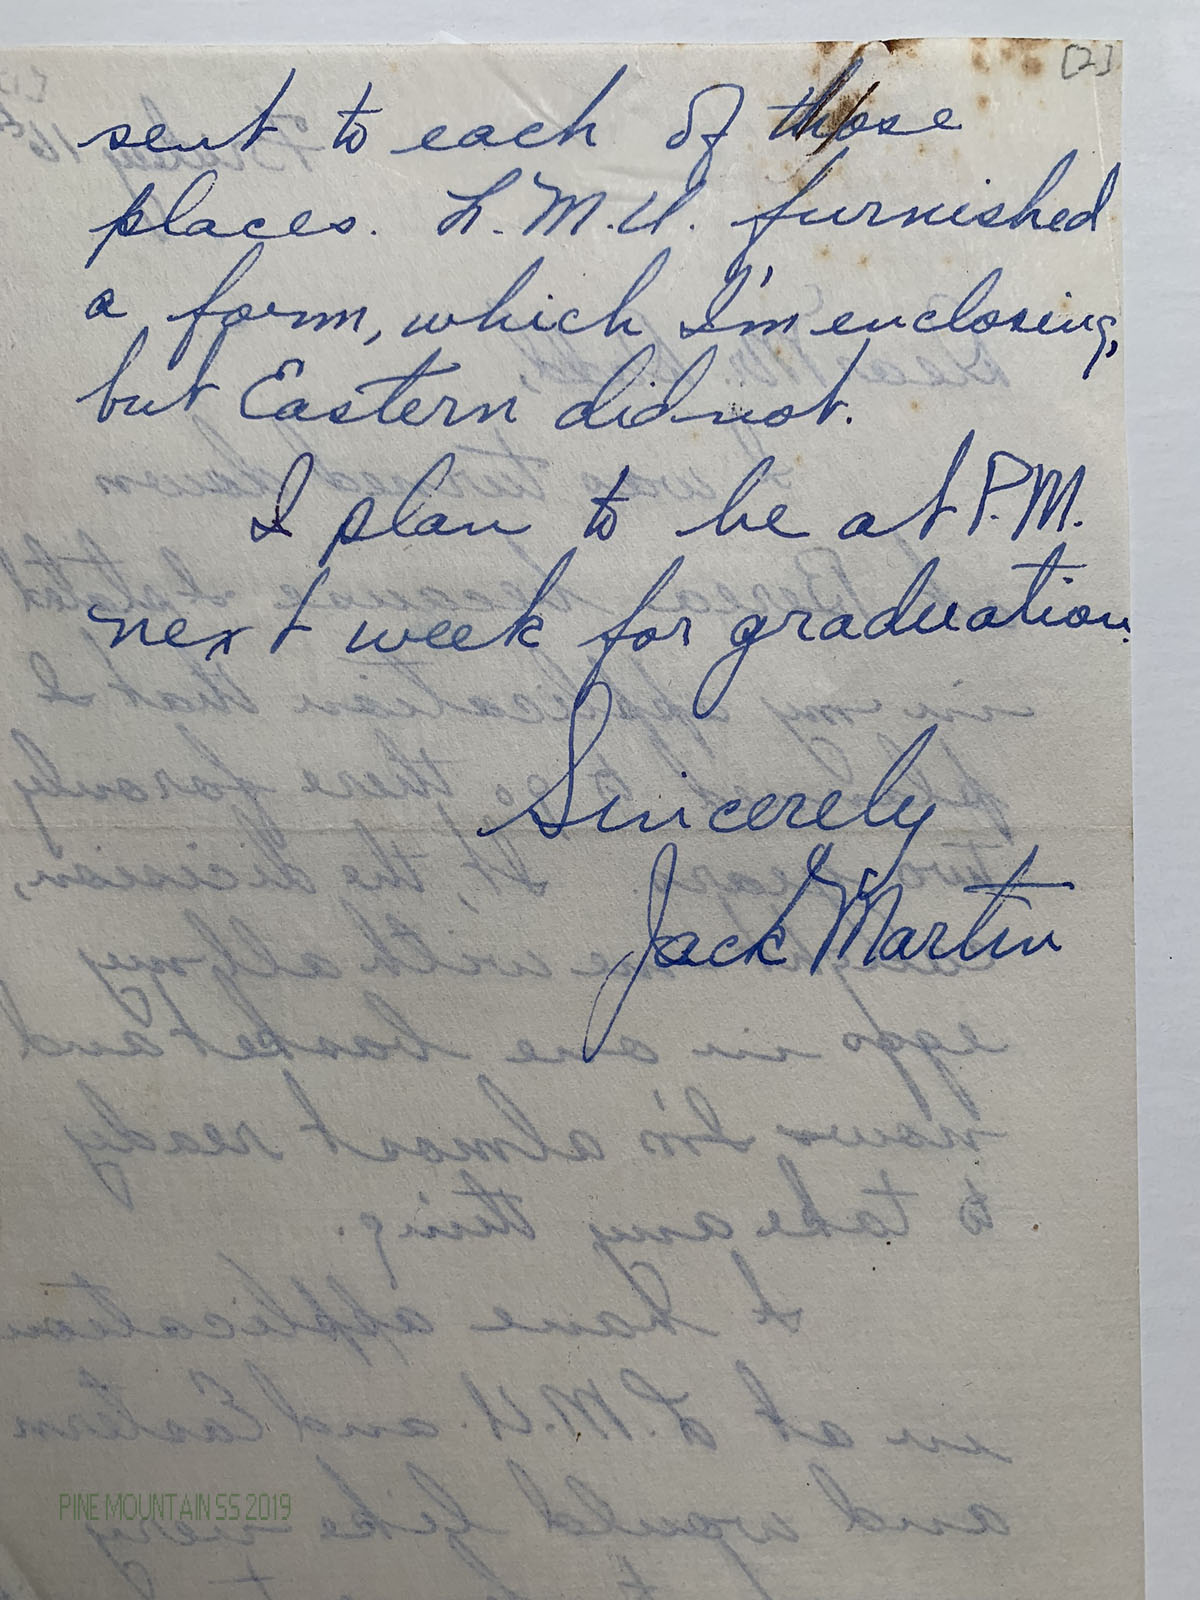 [2]
sent to each of those
places. L.M.U. furnished
a form, which I'm enclosing,
but Eastern did not.
I plan to be at P.M.
next week for graduation.
Sincerely
Jack Martin
PINE MOUNTAIN SS 2019